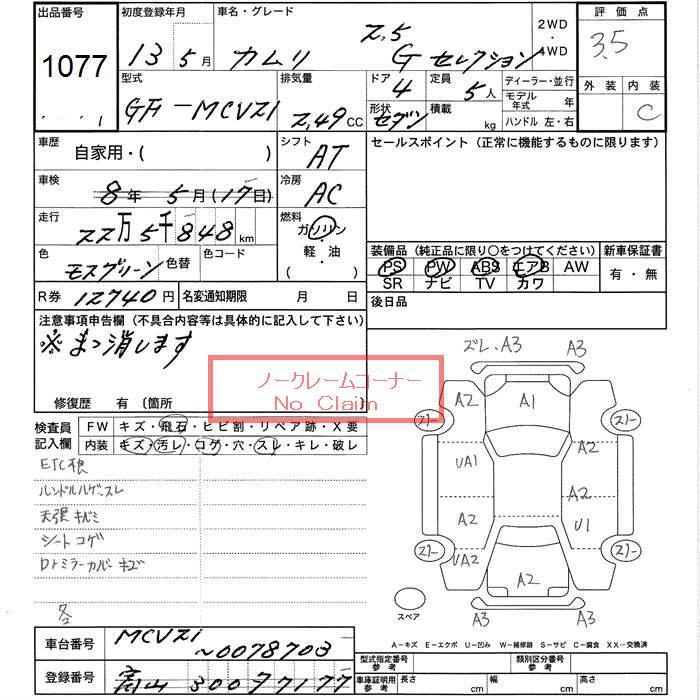 出品番号 初度登録年月 車名・グレード 2WD・4WD 評価点
1077 13 5月 カムリ 2.5 G セレクション 3.5
外装 内装
C
型式 排気量 ドア 定員 ディーラー・並行
GF-MCV21 2,49 CC 4 5人 モデル年式 年
形状 積載
セダン kg ハンドル 左・右
車歴 シフト セールスポイント（正常に機能するものに限ります）
自家用・( ) AT
車検 冷房
8年 5月(17日) AC
走行 燃料
22万5千848 km ガソリン
色 色替 色コード 軽・油
モスグリーン ( )
装備品（純正品に限り○をつけてください） 新車保証書
PS PW ABS エアB AW 有・無
SR ナビ TV カワ
R券 12740円 名変通知期限 月 日 後日品
注意事項申告欄（不具合内容等は具体的に記入して下さい）
※まっ消します
ノークレームコーナー
No Claim
修復歴 有（箇所
検査員記入欄 FW キズ・飛石・ヒビ割・リペア跡・X要
内装 キズ・汚レ・コゲ・穴・スレ・キレ・破レ
ETC根
ハンドルハゲ、スレ
天張キバミ
シートコゲ
Dトミラーカバーキズ
ズレ、A3 A3
A2 A1
UA1 A2
A2 A2
U1
UA2 A2
A3 A3
スペア
A－キズ E－エクボ U－凹み W－補修跡 S－サビ C－腐食 XX－交換済
車台番号 MCV21-0078703
型式指定番号 参考 類別区分番号 参考
登録番号 富山 300 77177
車庫証明用参考 長さ cm 幅 cm 高さ cm